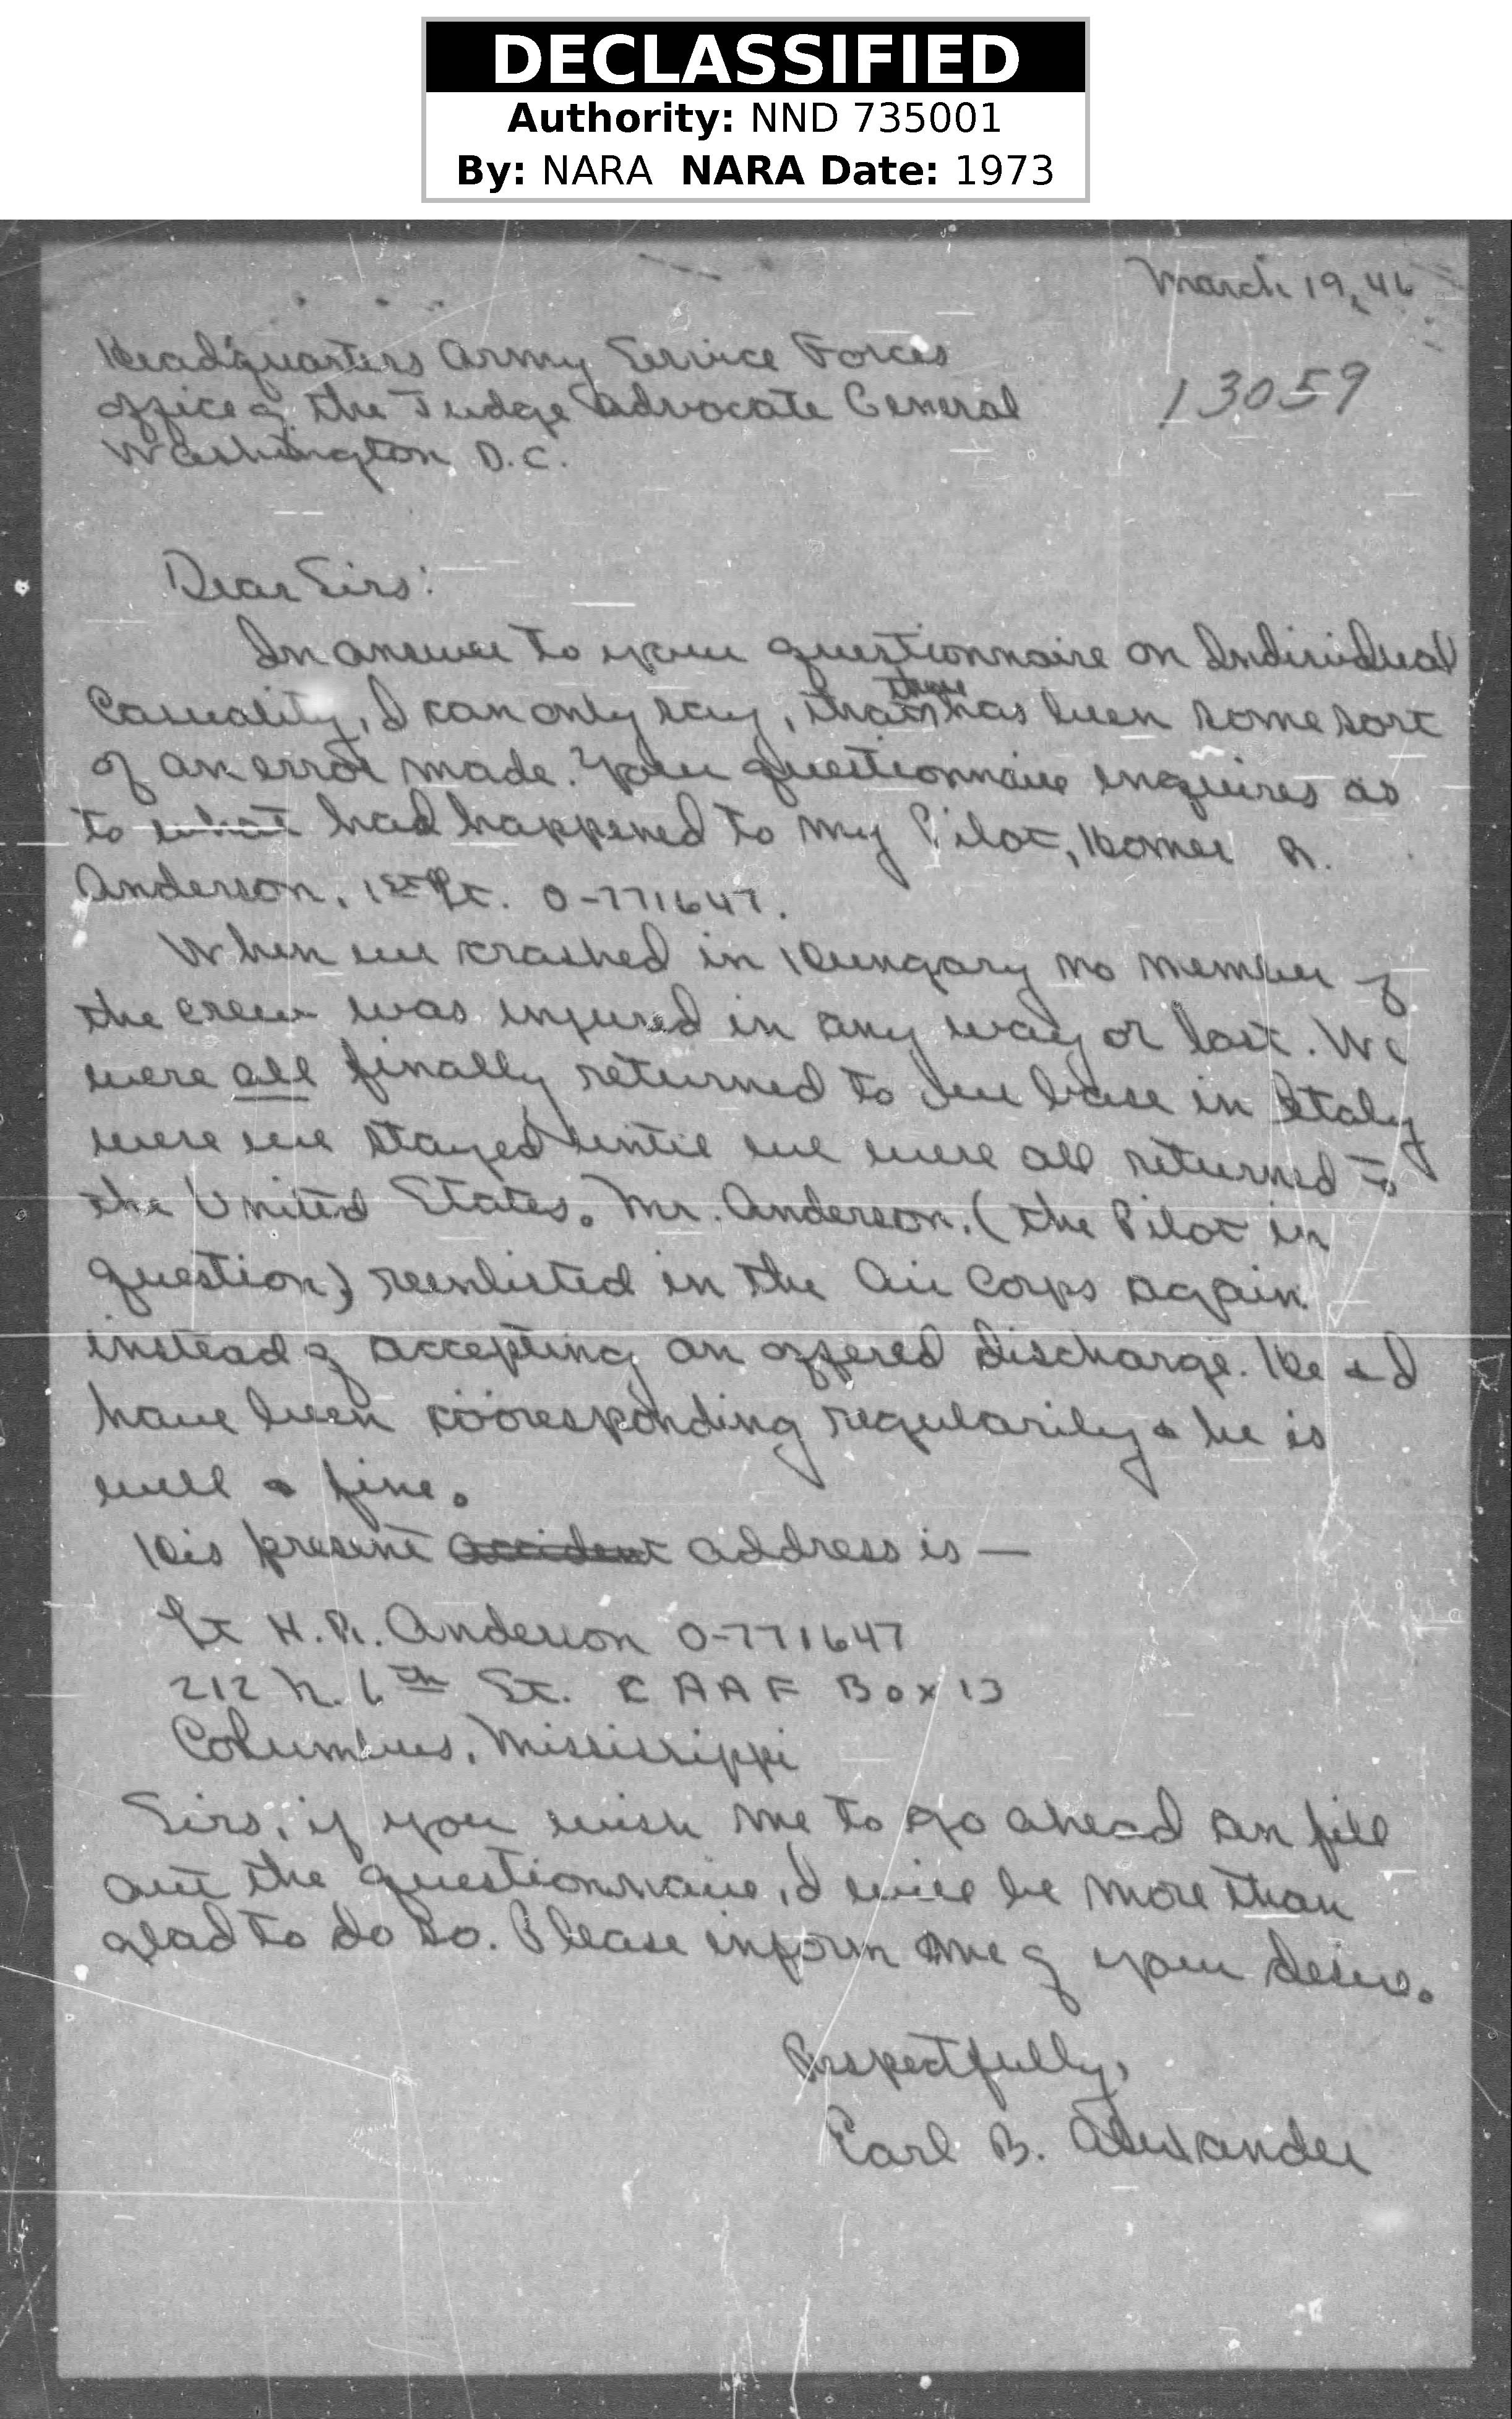 DECLASSIFIED
Authority: NND 735001
By: NARA NARA Date: 1973
March 19, 46
Headquarters Army Service Forces
13059
office of the Judge Advocate General
Washington D.C.
Dear Sirs:
In answer to your questionnaire on Individual
Casuality, I can only say, that there has been some sort
of an error made. Your questionnaire enquires as
to what had happened to my Pilot, Homer R.
Anderson, 1st Lt. O-771647.
When we crashed in Hungary no member of
the crew was injured in any way or lost. We
were all finally returned to our base in Italy
were we stayed until we were all returned to
the United States. Mr. Anderson, (the Pilot in
question) reenlisted in the Air Corps again
instead of accepting an offered discharge. He & I
have been cooresponding regularily & he is
well & fine.
His present accident address is —
Lt H.R. Anderson O-771647
212 N. 6th St. CAAF Box 13
Columbus, Mississippi
Sirs, if you wish me to go ahead an fill
out the questionnaire, I will be more than
glad to do so. Please inform me of your desire.
Respectfully,
Earl B. Alexander